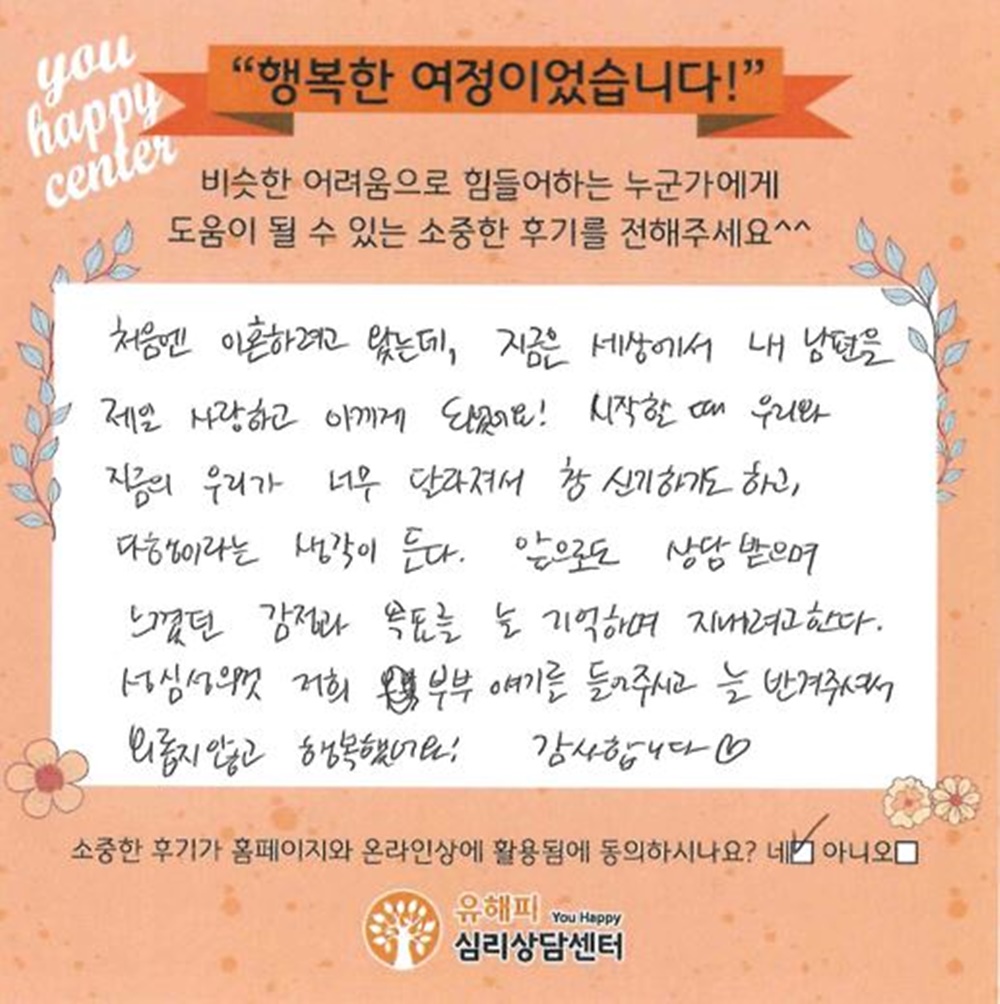 you
happy
center
“행복한 여정이었습니다!”
비슷한 어려움으로 힘들어하는 누군가에게
도움이 될 수 있는 소중한 후기를 전해주세요^^
처음엔 이혼하려고 왔는데, 지금은 세상에서 내 남편을
제일 사랑하고 아끼게 되었어요! 시작할 때 우리와
지금의 우리가 너무 달라져서 참 신기하기도 하고,
다행이라는 생각이 든다. 앞으로도 상담 받으며
느꼈던 감정과 목표를 늘 기억하며 지내려고 한다.
성심성의껏 저희 부부 얘기를 들어주시고 늘 반겨주셔서
외롭지 않고 행복했어요! 감사합니다♡
소중한 후기가 홈페이지와 온라인상에 활용됨에 동의하시나요? 네☑ 아니오□
유해피 You Happy
심리상담센터